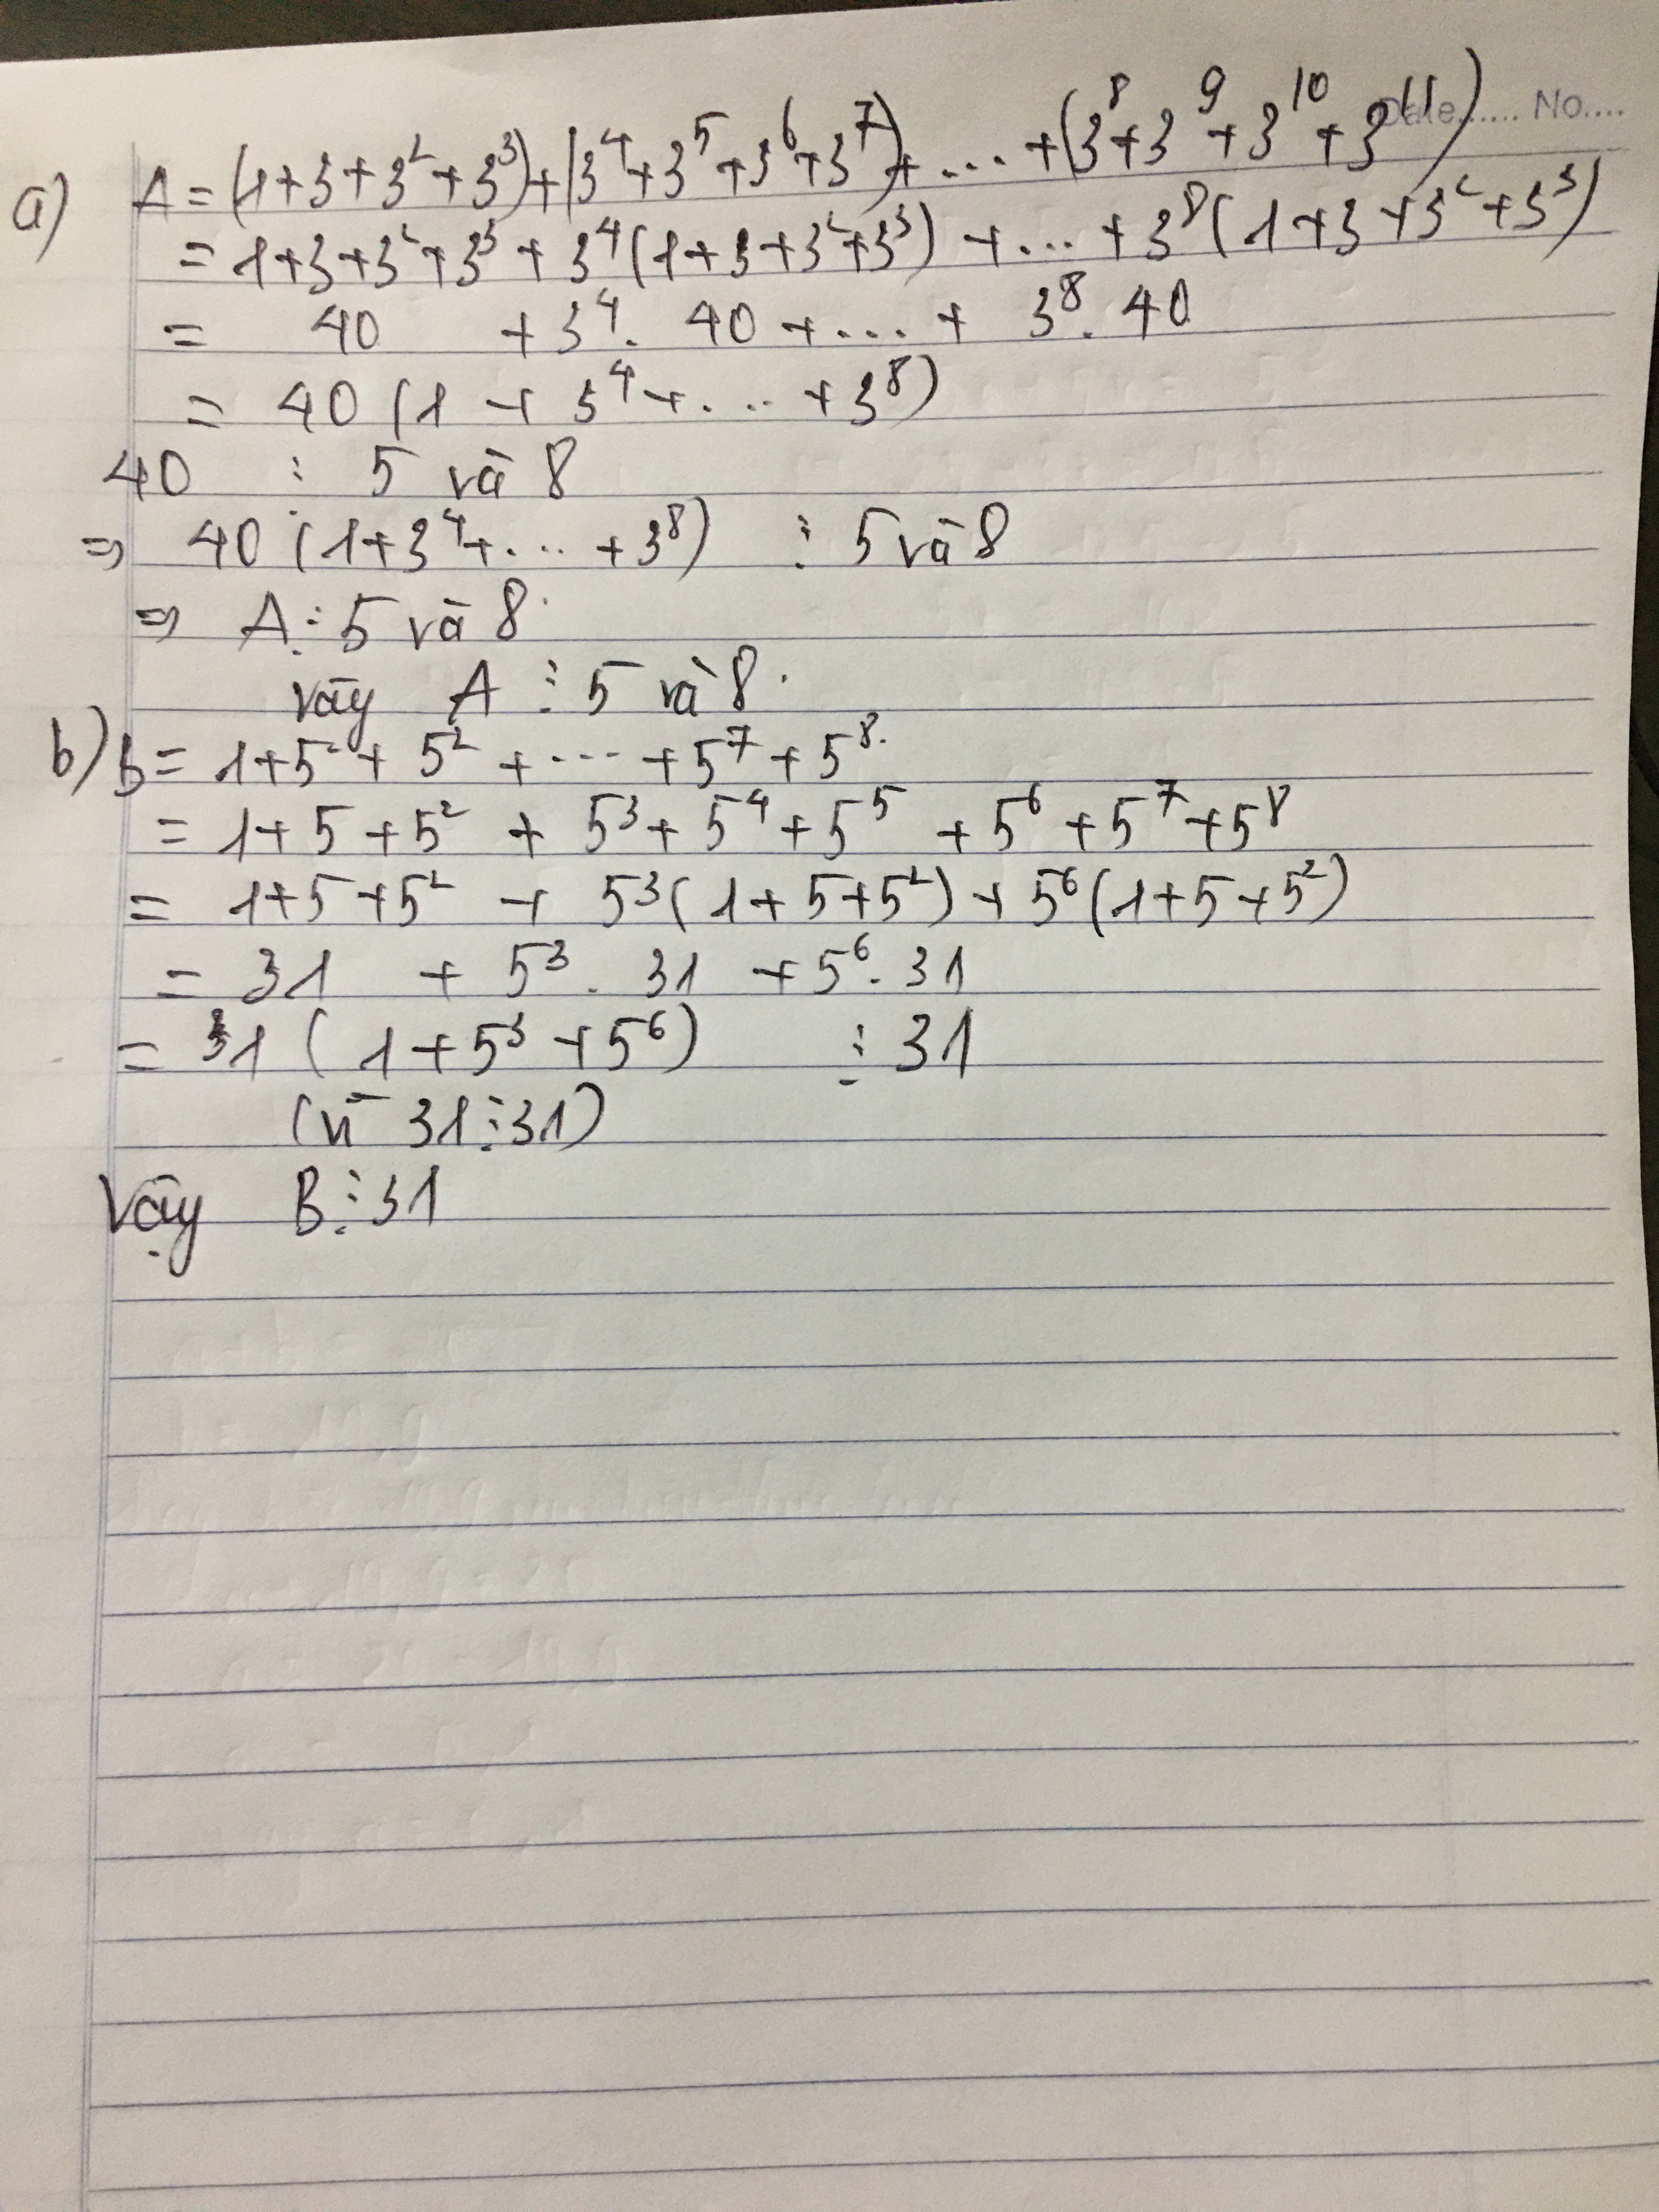 Date...... No....
a) A = (1+3+3²+3³)+(3⁴+3⁵+3⁶+3⁷)+ .... +(3⁸+3⁹+3¹⁰+3¹¹)
= 1+3+3²+3³ + 3⁴(1+3+3²+3³) + ... + 3⁸(1+3+3²+3³)
= 40 + 3⁴. 40 + .... + 3⁸. 40
= 40 (1 + 3⁴+. ... + 3⁸)
40 ⋮ 5 và 8
⇒ 40 (1+3⁴+. ... +3⁸) ⋮ 5 và 8
⇒ A ⋮ 5 và 8.
Vậy A ⋮ 5 và 8.
b) B = 1+5+ 5² + .... + 5⁷ + 5⁸.
= 1+ 5 +5² + 5³+ 5⁴ + 5⁵ + 5⁶ + 5⁷ +5⁸
= 1+5+5² + 5³(1+5+5²) + 5⁶(1+5+5²)
= 31 + 5³. 31 + 5⁶. 31
= 31 ( 1+5³ +5⁶) ⋮ 31
(vì 31⋮31)
Vậy B⋮31